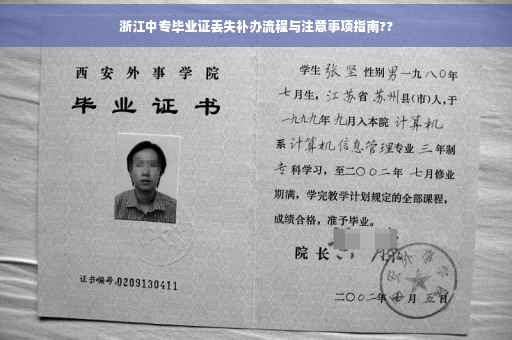 浙江中专毕业证丢失补办流程与注意事项指南??
西安外事学院
毕业证书
证书编号:0209130411
学生 张坚 性别 男 一九八〇年
七月生，江苏省 苏州县(市)人，于
一九九九年 九月入本院 计算机
系 计算机信息管理专业 三 年制
专科学习，至二〇〇二年 七月修业
期满，学完教学计划规定的全部课程，
成绩合格，准予毕业。
院长
二〇〇二年 月 五日